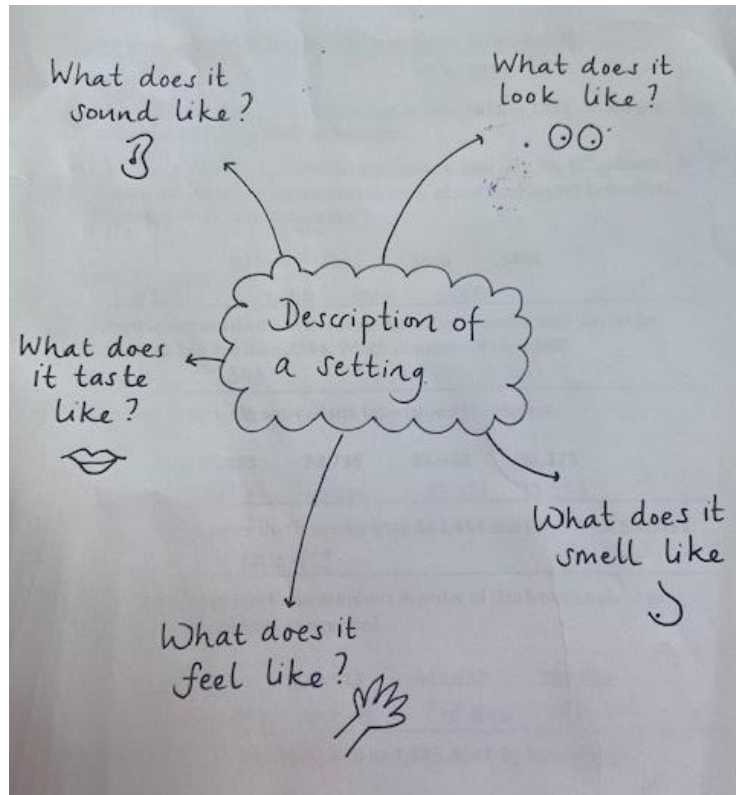 What does it
sound like?
What does it
look like?
Description of
a setting
What does
it taste
like?
What does it
smell like
What does it
feel like?